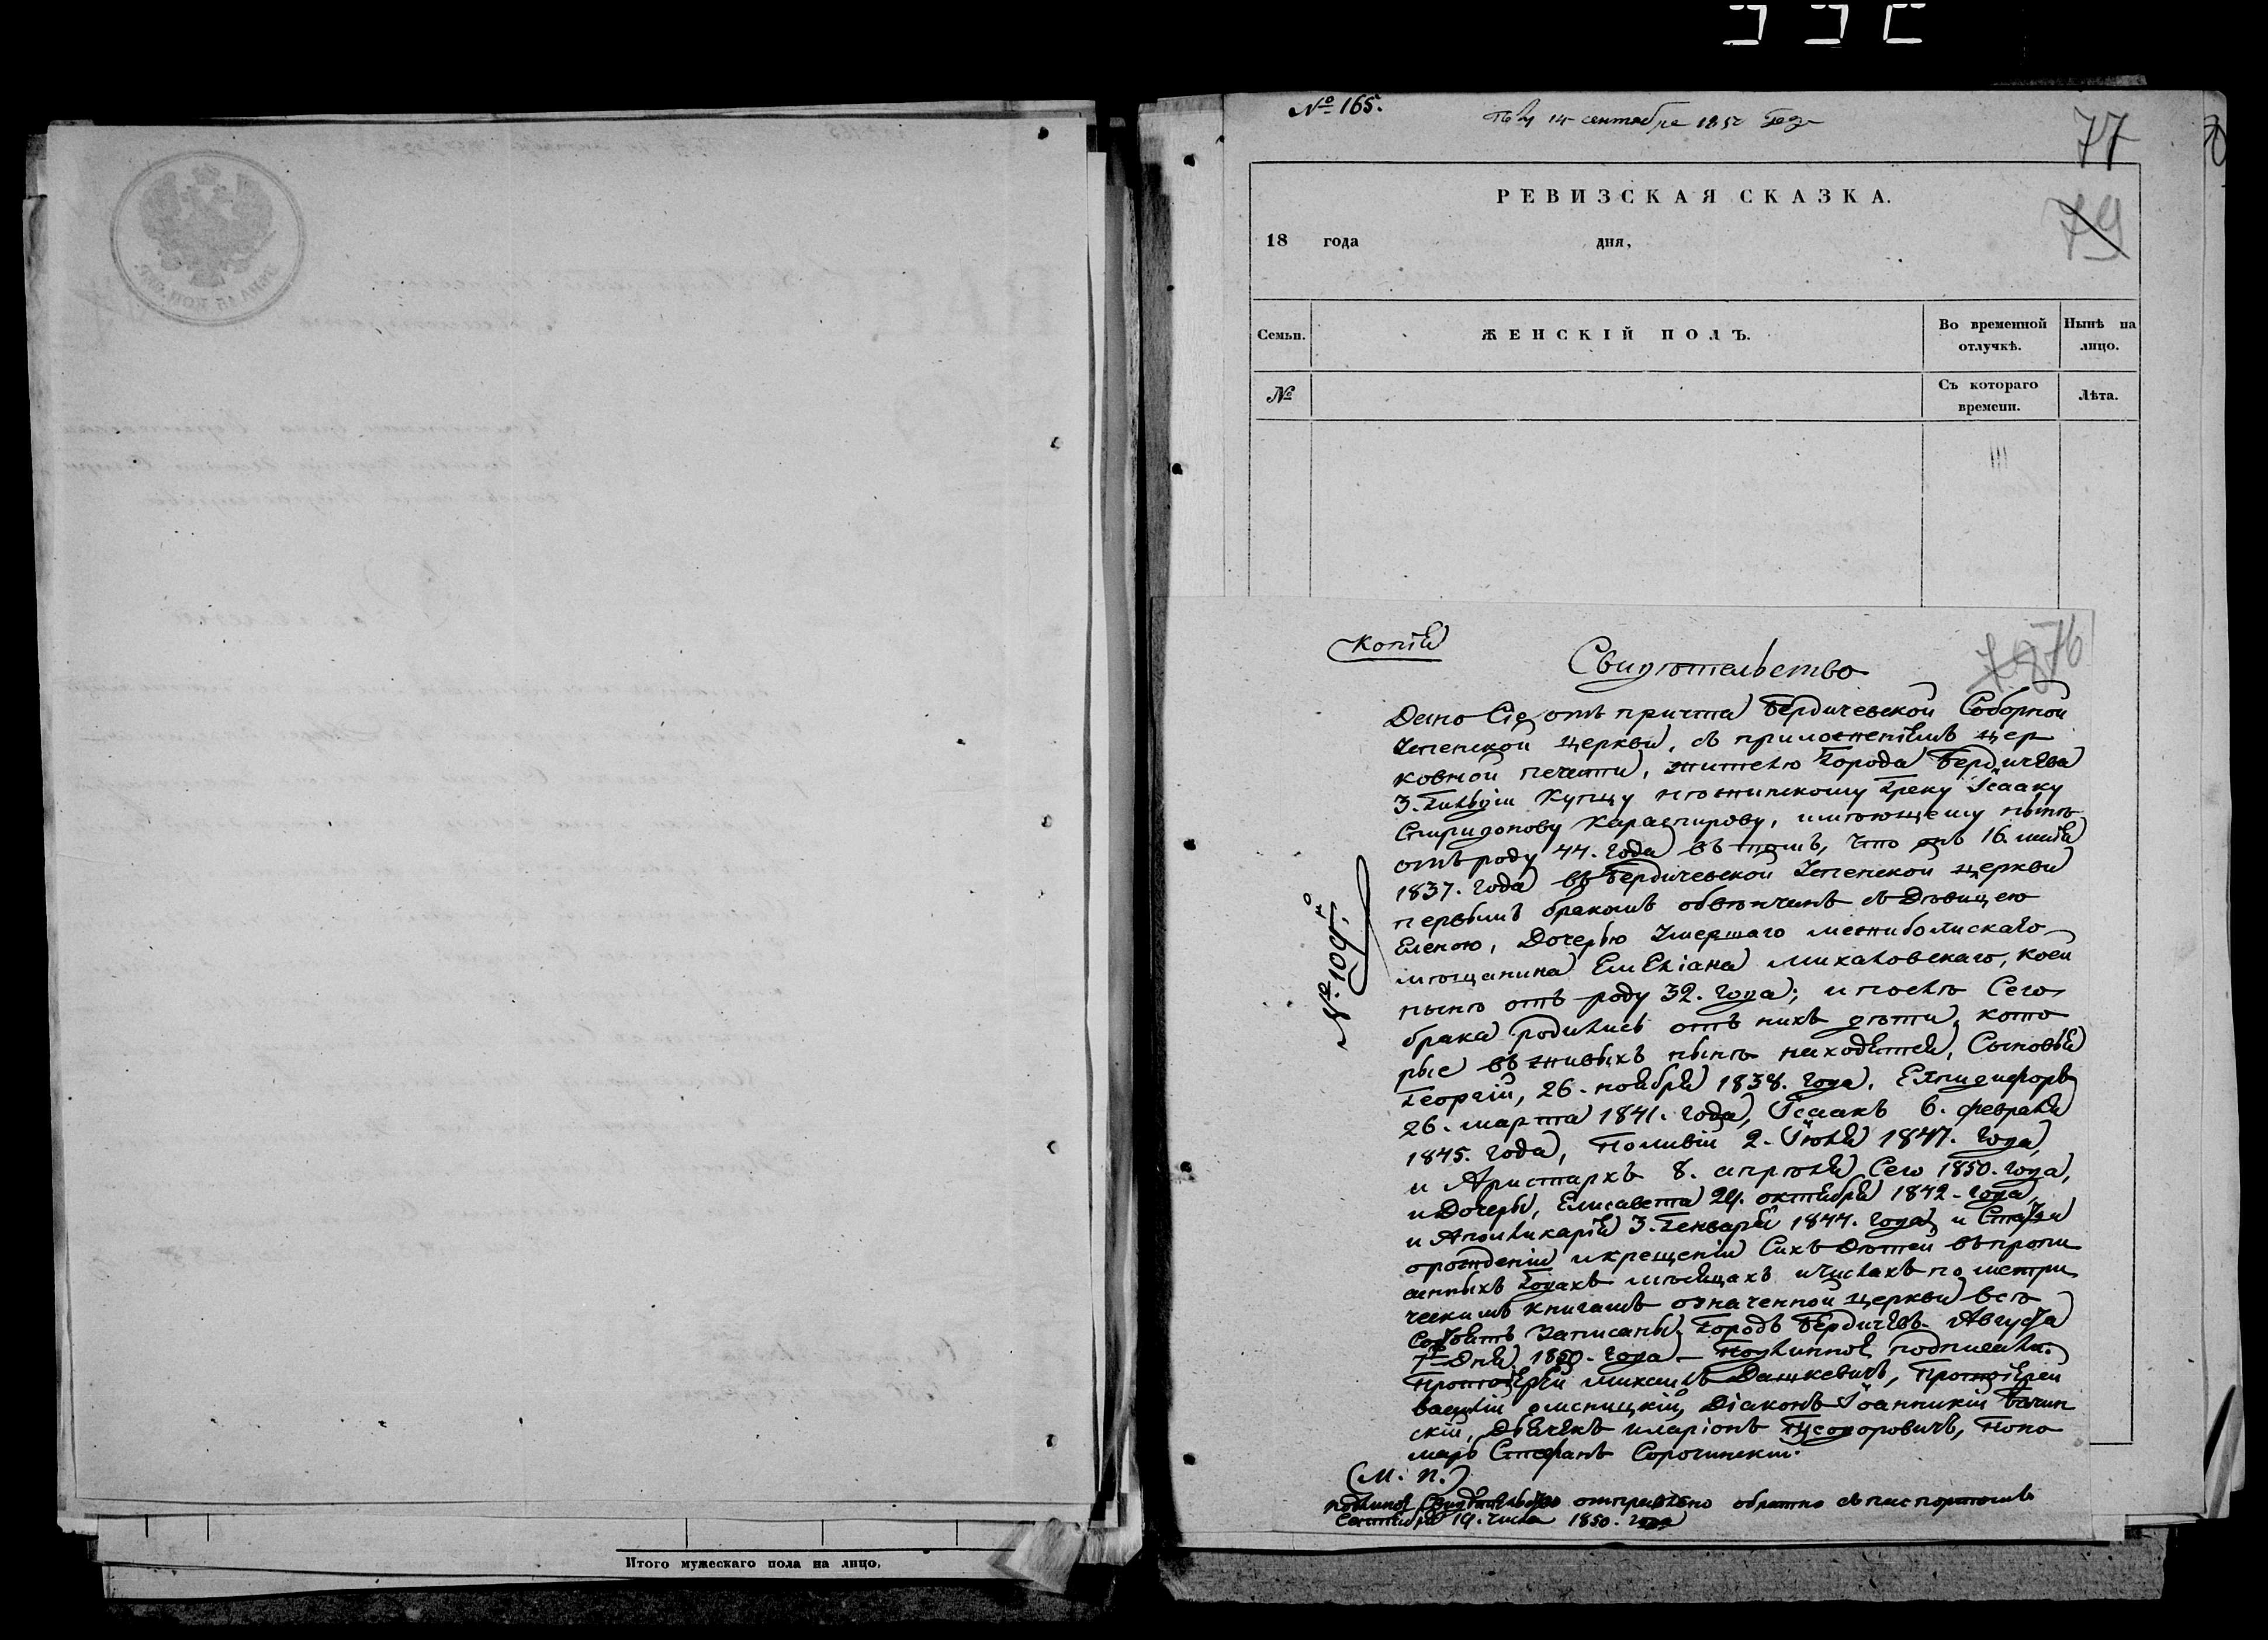 № 165.
14 сентября 1850 года
77
79
РЕВИЗСКАЯ СКАЗКА.
18 года дня,
Семьи.
ЖЕНСКІЙ ПОЛЪ.
Во временной отлучкѣ.
Нынѣ на лицо.
№
Съ котораго времени.
Лѣта.
Копія
76
Свидѣтельство
Дано Сіе отъ причта Бердичевской Соборной
Успенской церкви, съ приложеніемъ цер
ковной печати, жителю Города Бердичева
3. Гильдіи Купцу нѣжинскому Греку Ісааку
Спиридонову Караспирову, имѣющему нынѣ
отъ роду 44. года въ томъ, что онъ 16. маія
1837. года въ Бердичевской Успенской церкви
первымъ бракомъ обвѣнчанъ съ Дѣвицею
Еленою, Дочерью Умершаго межибожскаго
мѣщанина Емеліана Михаловскаго, коей
нынѣ отъ роду 32. года; и послѣ Сего
брака родились отъ нихъ дѣти, кото
рые въ живыхъ нынѣ находятся, Сыновья
Георгій, 26. ноября 1838. года, Елпидифоръ
26. марта 1841. года, Ісаакъ 6. февраля
1845. года, 2. Іюля 1847. года,
и Аристархъ 8. апрѣля Сего 1850. года,
и Дочеры, Елисавета 24. октября 1842. года,
и Аполикарія 3. Генваря 1844. года, и Статьи
о рожденіи и крещеніи Сихъ Дѣтей въ пропи
санныхъ Годахъ мѣсяцахъ и числахъ по метри
ческимъ книгамъ означенной церкви всѣ
Состоятъ Записаны. Городъ Бердичевъ. Августа
7 Дня 1850. года — Подлинное подписали:
Протоіерей Михаилъ Дашкевичъ, Протоіерей
Василій Діаконъ Іоанникій Бачин
скій, Дьячекъ Иларіонъ Пономарь Стефанъ Сорочинскій.
(М. П.)
подлинное Свидѣтельство отправлено обратно съ паспортомъ
Сентября 14. числа 1850. года
№ 109.
Итого мужескаго пола на лицо,